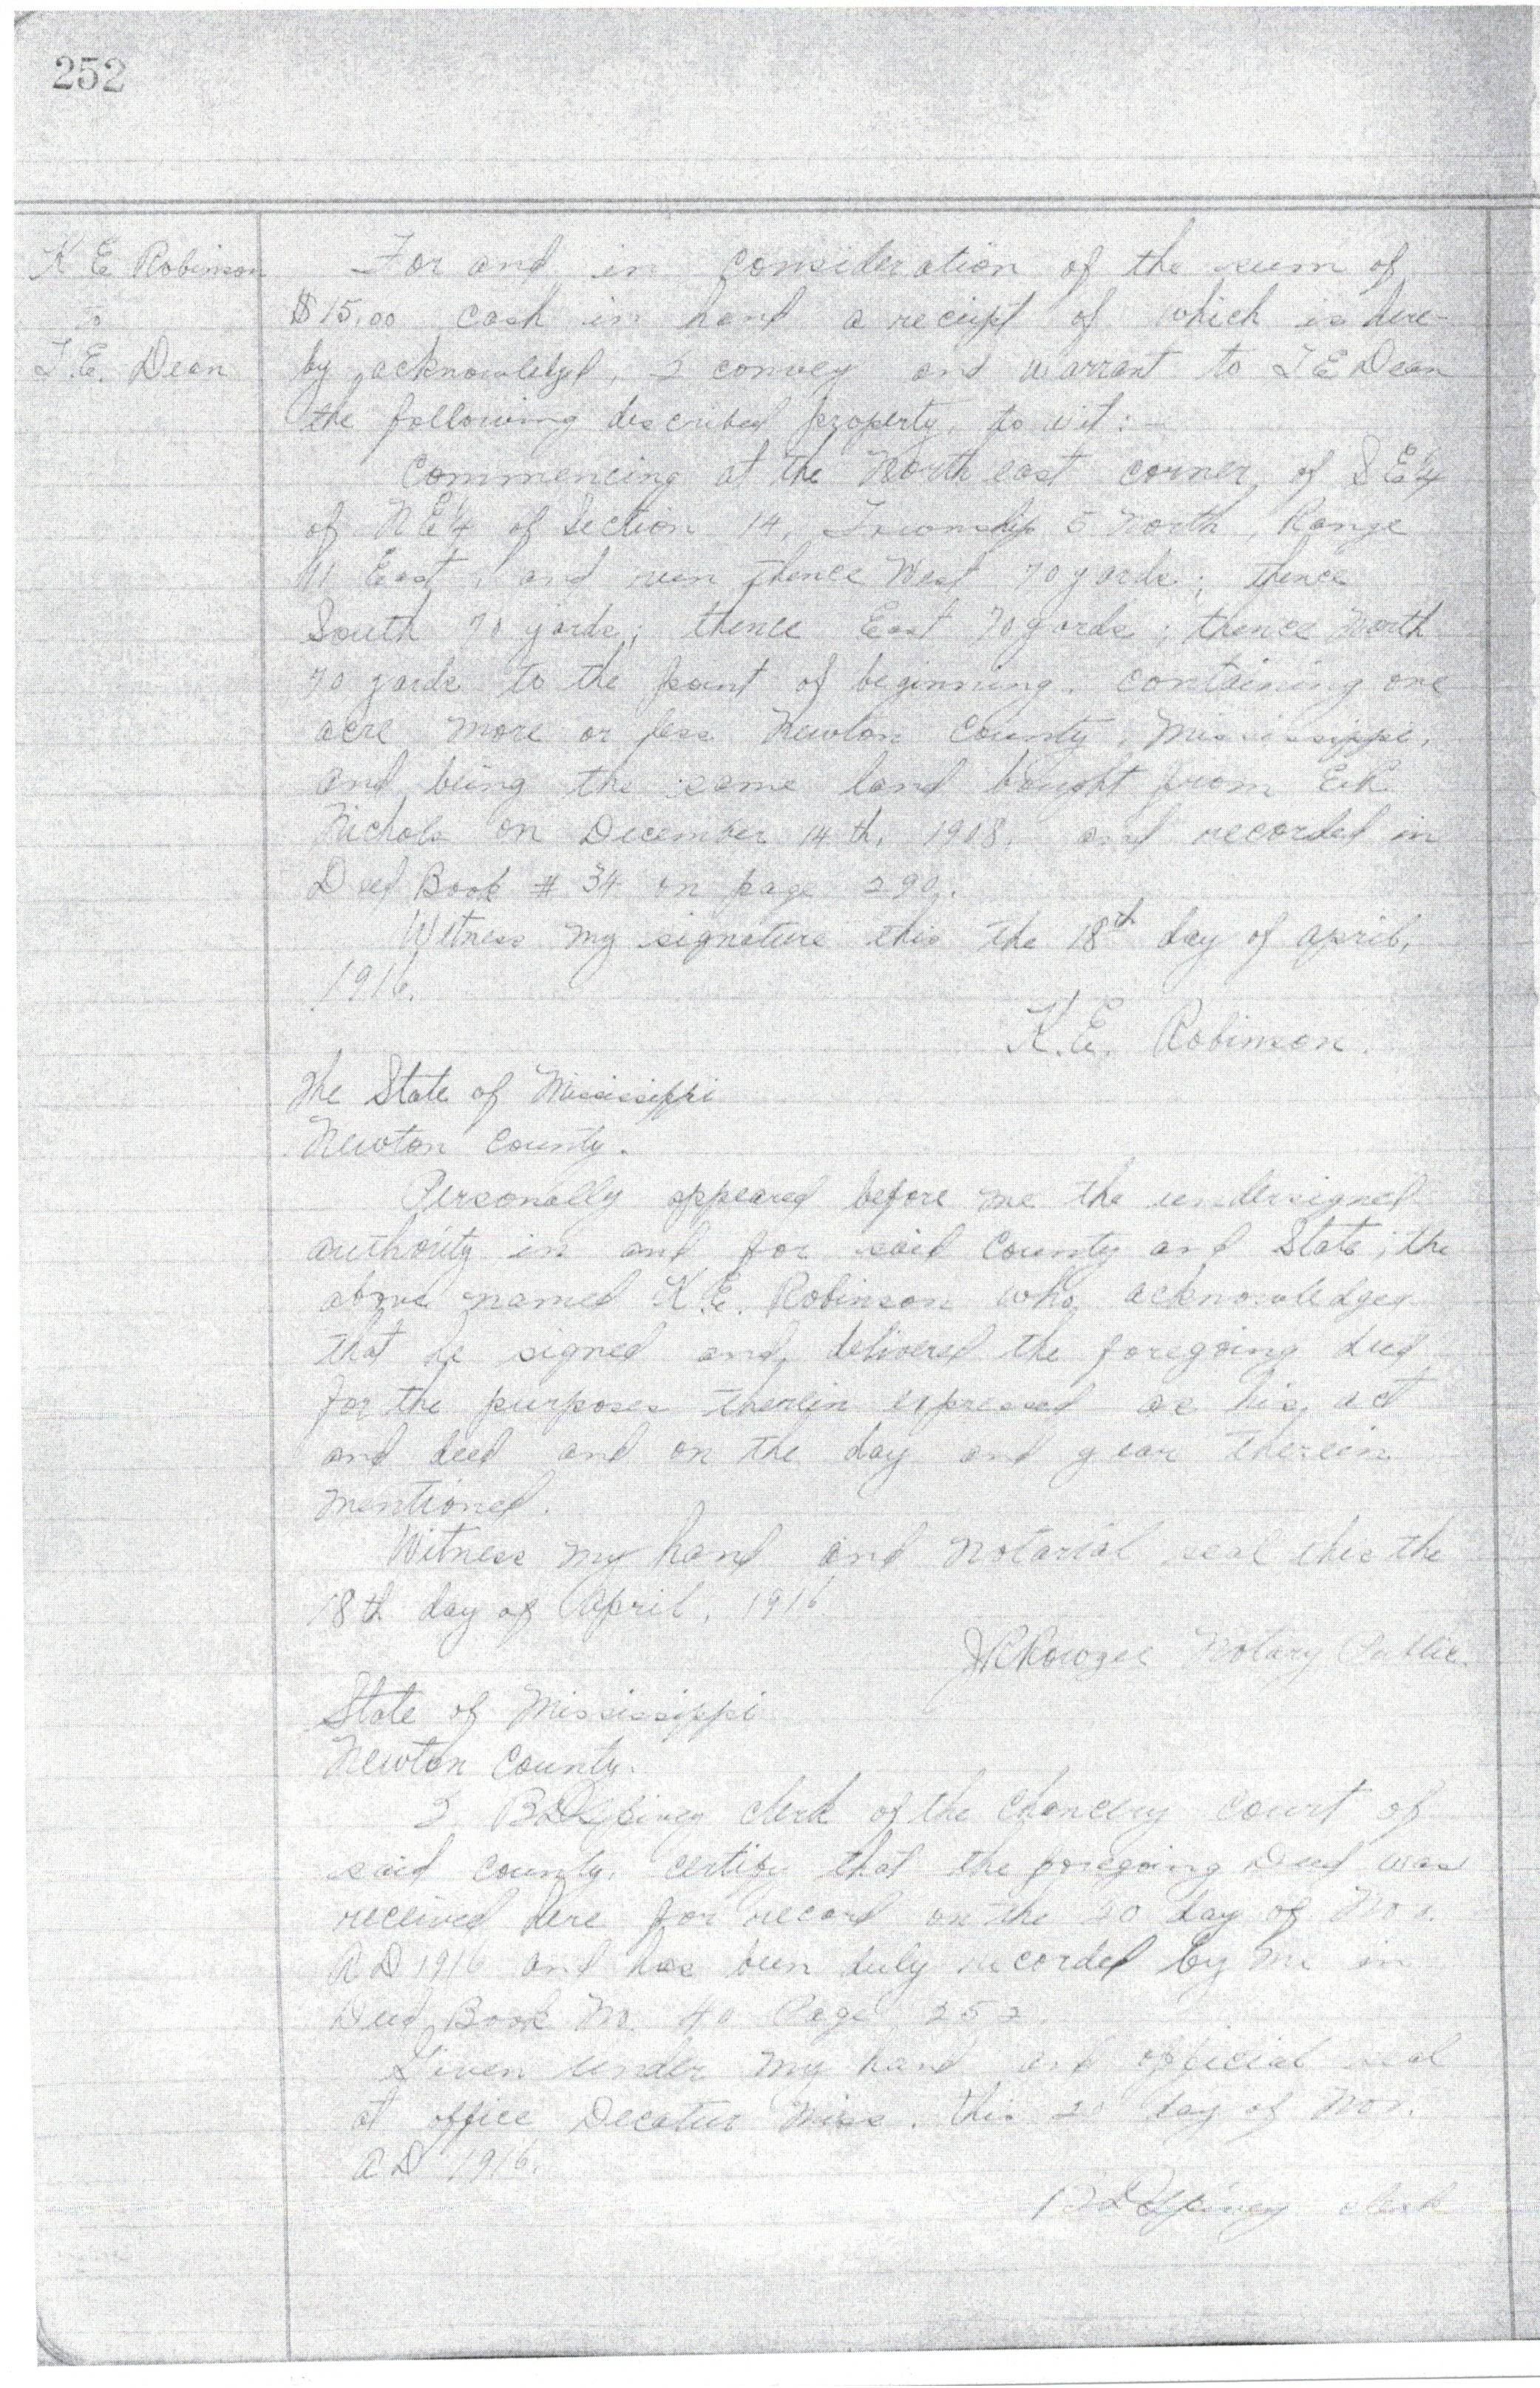 252
K E Robinson
to
T.E. Dean
For and in consideration of the sum of
$15.00 cash in hand a receipt of which is here-
by acknowledged, I convey and warrant to T E Dean
the following described property, to wit:-
Commencing at the North east corner of S E 1/4
of N E 1/4 of Section 14, Township 5 North, Range
11 East, and run thence West 70 yards; thence
South 70 yards; thence East 70 yards; thence North
70 yards to the point of beginning. containing one
acre more or less Newton County, Mississippi,
and being the same land bought from
Nichols on December 14th, 1908, and recorded in
Deed Book # 34 on page 290.
Witness my signature this the 18th day of april,
1916.
K.E. Robinson.
The State of Mississippi
Newton County.
Personally appeared before me the undersigned
authority in and for said County and State, the
above named K.E. Robinson who acknowledges
that he signed and delivered the foregoing deed
for the purposes therein expressed as his act
and deed and on the day and year therein
mentioned.
Witness my hand and notarial seal this the
18th day of April, 1916
Notary Public.
State of Mississippi
Newton County.
I clerk of the Chancery court of
said county, certify that the foregoing Deed was
received here for record on the 20 day of Nov.
A D 1916 and has been duly recorded by me in
Deed Book No. 40 Page 252.
Given under my hand and official seal
at office Decatur Miss. this 20 day of Nov.
A D 1916.
clerk